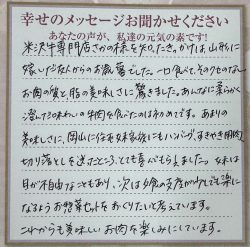 幸せのメッセージお聞かせください
あなたの声が、私達の元気の素です!
米沢牛専門店さかの様を知ったきっかけは、山形に
嫁いだ友人からのお歳暮でした。一口食べて、そのクセのない
お肉の質と脂の美味しさに驚きました。あんなに柔らかく
澄んだ味わいの牛肉を食べたのは初めてです。あまりの
美味しさに、岡山に住む妹家族にもハンバーグ、すきやき用肉
切り落としを送ったところ、とても喜んでもらえました。妹は
目が不自由なこともあり、次は夕食の支度が少しでも楽に
なるようお惣菜セットをおくりたいと考えています。
これからも美味しいお肉を楽しみにしています。